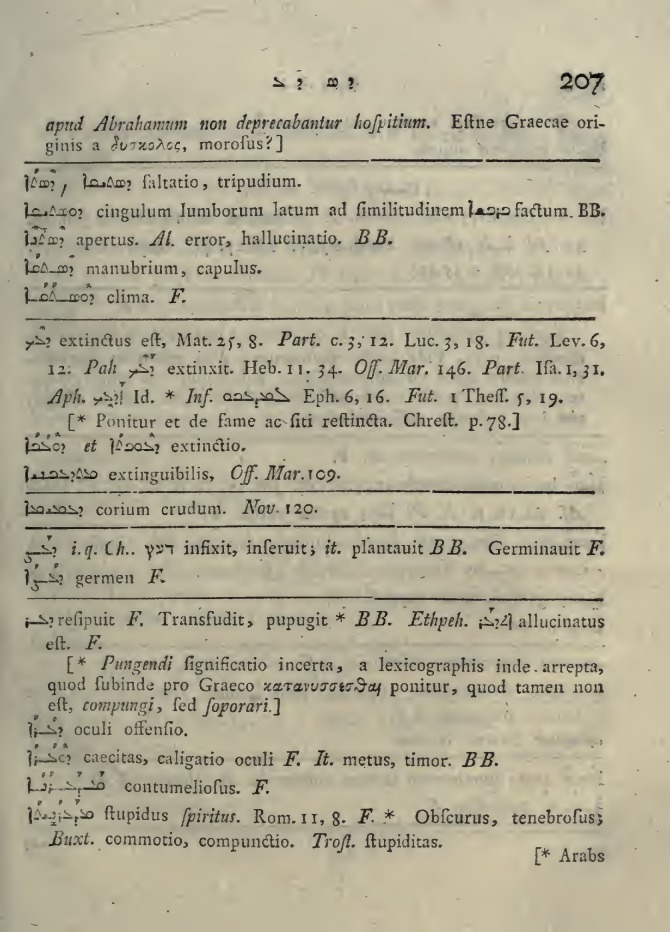 ܕ ܣ ܕ ܥ 207
apud Abrahamum non deprecabantur hoſpitium. Eſtne Graecae ori-
ginis a δυσκολος, moroſus?]
ſaltatio, tripudium.
cingulum lumborum latum ad ſimilitudinem factum. BB.
apertus. Al. error, hallucinatio. BB.
manubrium, capulus.
clima. F.
ܕܥܟ extinctus eſt, Mat. 25, 8. Part. c. 3, 12. Luc. 3, 18. Fut. Lev. 6,
12. Pah ܕܥܟ extinxit. Heb. 11. 34. Off. Mar. 146. Part. Iſa. 1, 31.
Aph. ܐܕܥܟ Id. * Inf. ܠܡܕܥܟܘ Eph. 6, 16. Fut. 1 Theſſ. 5, 19.
[* Ponitur et de fame ac ſiti reſtincta. Chreſt. p. 78.]
ܕܘܥܟܐ et ܕܥܘܟܬܐ extinctio.
extinguibilis, Off. Mar. 109.
corium crudum. Nov. 120.
ܕܥܨ i. q. Ch.. דעץ infixit, inſeruit; it. plantauit BB. Germinauit F.
ܕܥܨܐ germen F.
ܕܥܪ reſipuit F. Transfudit, pupugit * BB. Ethpeh. ܐܬܕܥܪ allucinatus
eſt. F.
[* Pungendi ſignificatio incerta, a lexicographis inde arrepta,
quod ſubinde pro Graeco κατανυσσεσθαι ponitur, quod tamen non
eſt, compungi, ſed ſoporari.]
ܕܥܪܐ oculi offenſio.
ܕܘܥܪܐ caecitas, caligatio oculi F. It. metus, timor. BB.
ܡܕܥܪܢܐ contumelioſus. F.
ܡܕܥܪܢܝܬܐ ſtupidus ſpiritus. Rom. 11, 8. F. * Obſcurus, tenebroſus;
Buxt. commotio, compunctio. Troſt. ſtupiditas.
[* Arabs